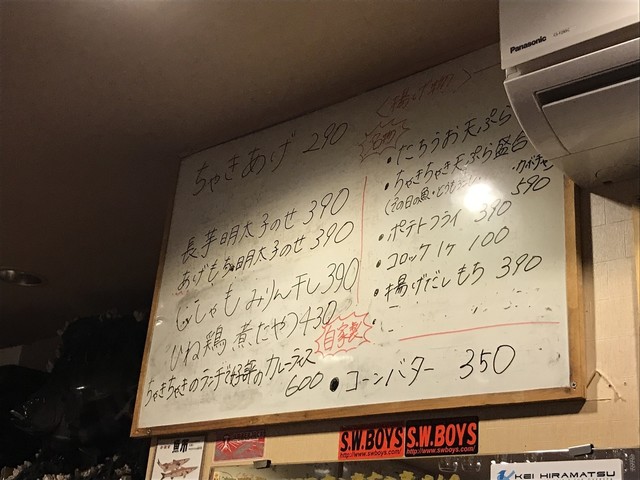 ちゃきあげ 290
長芋明太子のせ 390
あげもち明太子のせ 390
ししゃもみりん干し 390
ひね鶏煮たやつ 430
自家製
ちゃきちゃきのランチで好評のカレーライス
600
〈揚げ物〉
名物
・たちうお天ぷら
・ちゃきちゃき天ぷら盛合
(その日の魚・とうもろこし
590
・ポテトフライ 390
・コロッケ 1ヶ 100
・揚げだしもち 390
●コーンバター 350
Panasonic
S.W.BOYS
http://www.swboys.com/
S.W.BOYS
http://www.swboys.com/
KEI HIRAMATSU